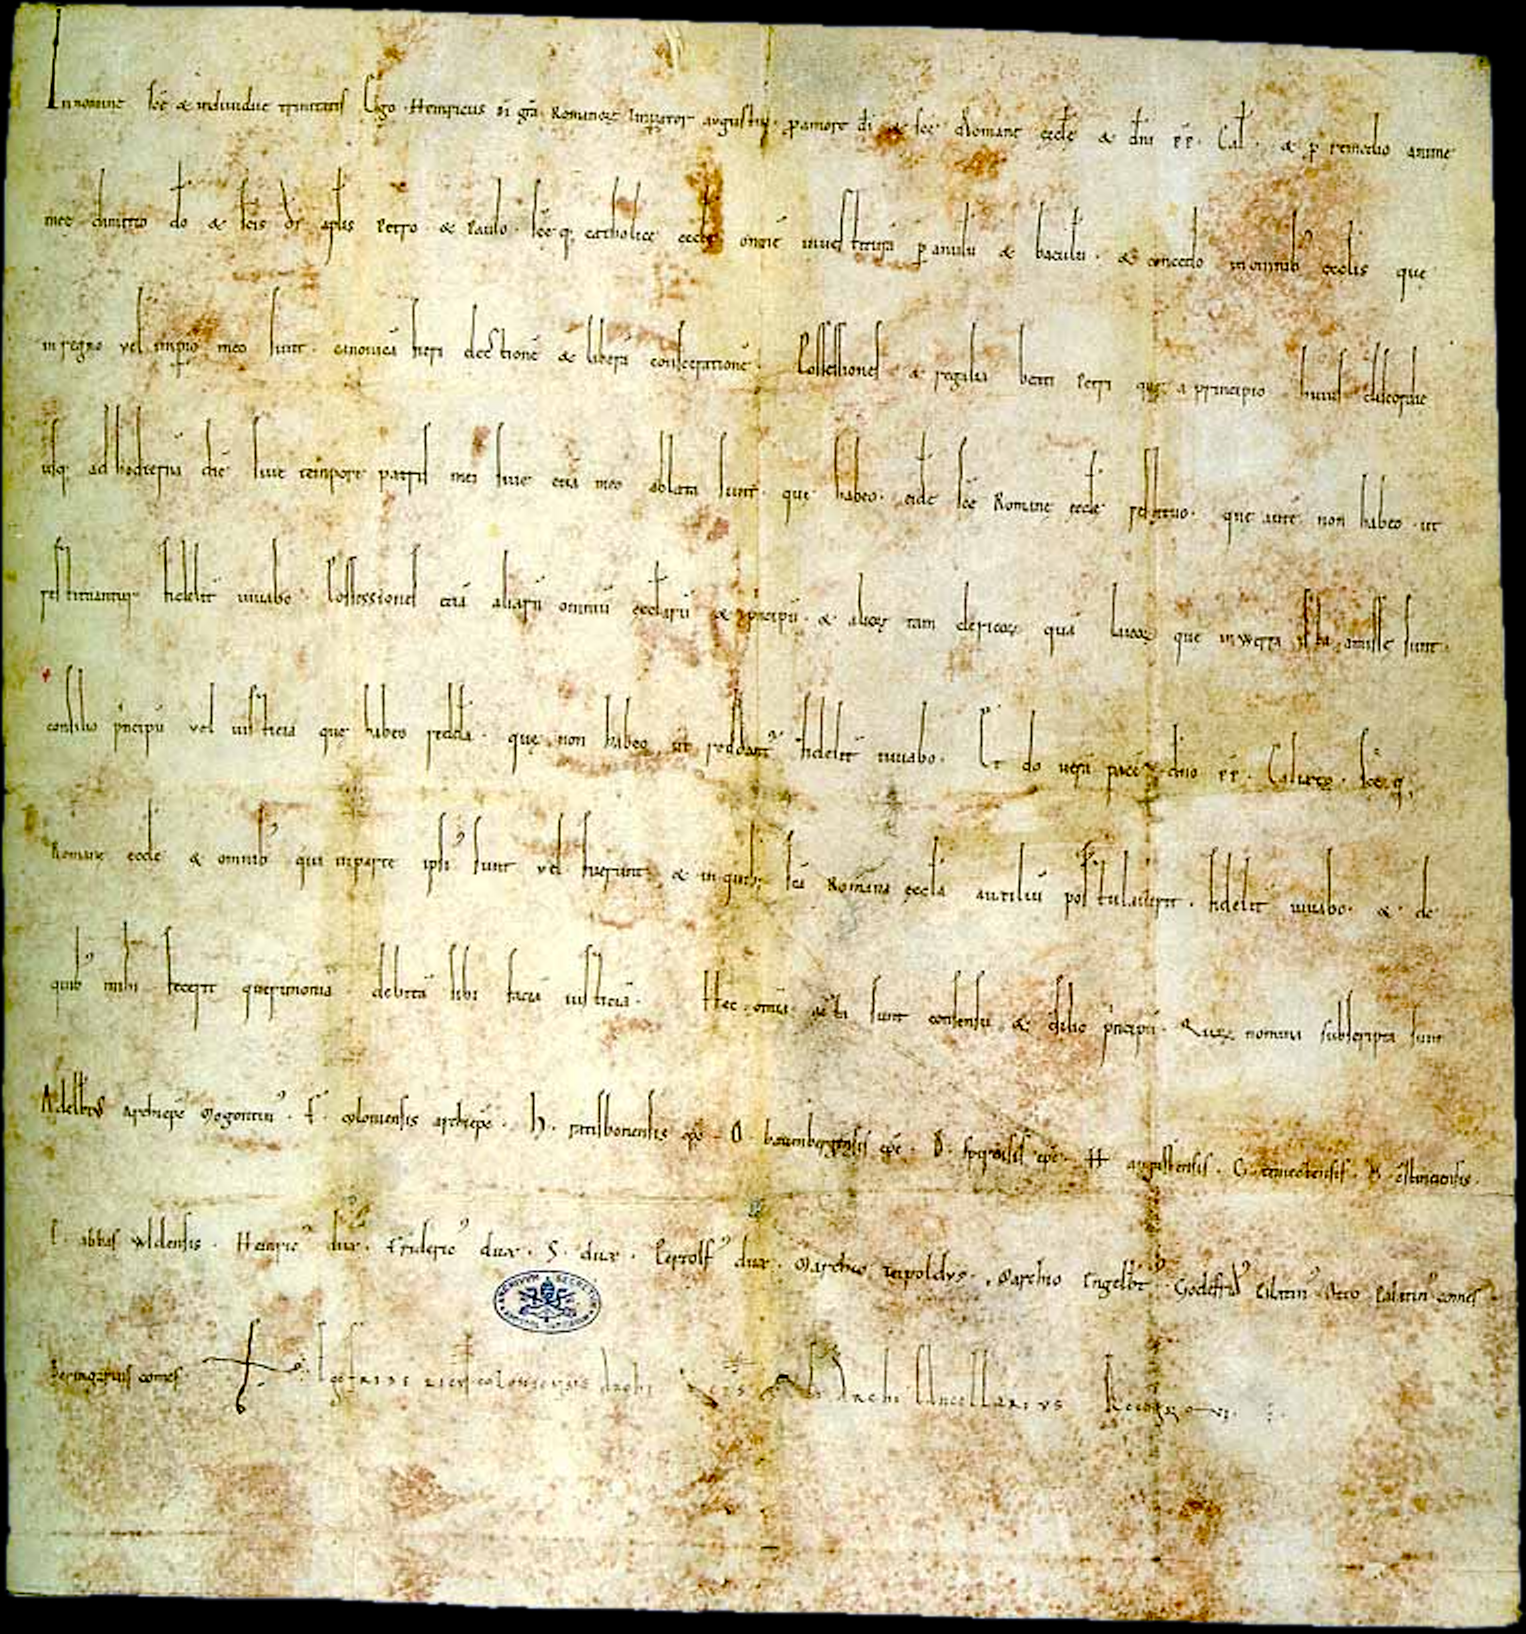 In nomine scę & individuę trinitatis Ego Heinricus di gra Romanoꝝ Imperator augustus p amore di & scę Romanę ęcclę & dni pp. Cal. & p remedio animę
męę dimitto do & scis di aplis Petro & Paulo scęq; catholicę ęcclę omnē investiturā p anulū & baculū & concedo in omnib' ęcclis que
in regno vel impio meo sunt canonicā fieri electionē & liberā consecrationē. Possessiones & regalia beati Petri quę a principio huius discordie
usq; ad hodiernā diē sive tempore patris mei sive etiā meo ablata sunt quę habeo eidē scę Romanę ęcclę restituo quę autē non habeo ut
restituantur fidelit iuvabo. Possessiones etiā aliarū omniū ęccłarū & pncipū & alioꝝ tam clericoꝝ quā laicoꝝ que in werra ista amissę sunt
consilio pncipū vel iusticia quę habeo reddā quę non habeo ut reddant' fidelit iuvabo. Et do verā pacē dno pp. Calixto scęq;
Romanę ęcclę & omnib' qui in parte ipsi' sunt vel fuerunt & in quib' sca Romana ęccla auxiliū postulaverit fidelit iuvabo & de
quib' mihi fecerit querimoniā debitā sibi faciā iusticiā. Hęc omia acta sunt consensu & cōsilio pncipū Quoꝝ nomina subscripta sunt
Adelbtus archiepc Mogontin'. F. coloniensis archiepc. H. ratisbonensis epc. O. bauenbergensis epc. B. spirensis epc. H augustensis. G. traiectensis. Ŏ cstanciensis.
E. abbas wldensis. Heinric' dux. Frideric' dux. S. dux. Pertolf' dux. Marchio teipoldvs. Marchio Engelbt'. Godefrid' Palatin'. Otto Palatin' comes
Beringarius comes Ego Fridericus coloniensis archieps & Archicancellarius Recognovi
ARCHIVVM SECRETVM